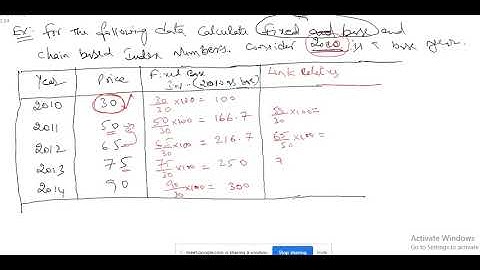 Ex: For the following data, calculate fixed base and
chain based Index numbers. Consider 2010 as a base year.
Year Price Fixed Base Link Relatives
(2010 as base)
2010 30 30/30 ×100 = 100
2011 50 50/30 ×100 = 166.7 50/30 ×100=
2012 65 65/30 ×100 = 216.7 65/50 ×100=
2013 75 75/30 ×100 = 250 7
2014 90 90/30 ×100 = 300
Activate Windows
Go to Settings to activate
meet.google.com is sharing a window. Stop sharing